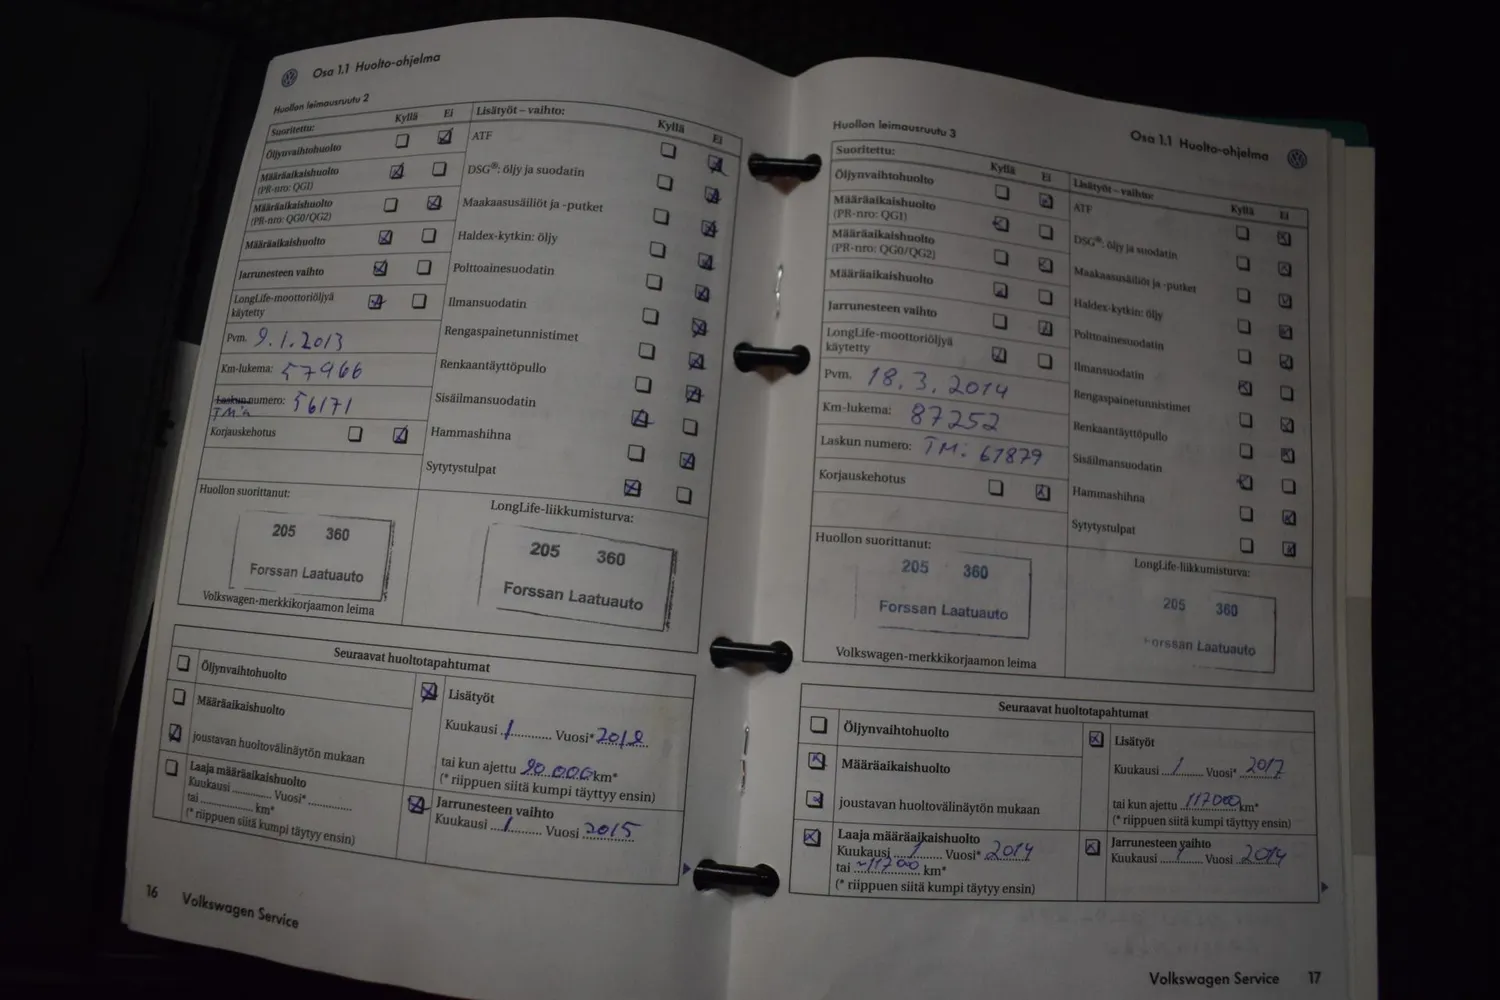 Osa 1.1 Huolto-ohjelma
Huollon leimausruutu 2
Suoritettu: Kyllä Ei
Öljynvaihtohuolto
Määräaikaishuolto
(PR-nro: QG1)
Määräaikaishuolto
(PR-nro: QG0/QG2)
Määräaikaishuolto
Jarrunesteen vaihto
LongLife-moottoriöljyä
käytetty
Pvm. 9.1.2013
Km-lukema: 57966
Laskun numero: 56171
TM:n
Korjauskehotus
Lisätyöt – vaihto: Kyllä Ei
ATF
DSG®: öljy ja suodatin
Maakaasusäiliöt ja -putket
Haldex-kytkin: öljy
Polttoainesuodatin
Ilmansuodatin
Rengaspainetunnistimet
Renkaantäyttöpullo
Sisäilmansuodatin
Hammashihna
Sytytystulpat
Huollon suorittanut:
205 360
Forssan Laatuauto
Volkswagen-merkkikorjaamon leima
LongLife-liikkumisturva:
205 360
Forssan Laatuauto
Seuraavat huoltotapahtumat
Öljynvaihtohuolto
Määräaikaishuolto
joustavan huoltovälinäytön mukaan
Laaja määräaikaishuolto
Kuukausi ............ Vuosi* ............
tai ............ km*
(* riippuen siitä kumpi täytyy ensin)
Lisätyöt
Kuukausi 1 Vuosi*
tai kun ajettu 90 000 km*
(* riippuen siitä kumpi täyttyy ensin)
Jarrunesteen vaihto
Kuukausi 1 Vuosi 2015
16 Volkswagen Service
Osa 1.1 Huolto-ohjelma
Huollon leimausruutu 3
Suoritettu: Kyllä Ei
Öljynvaihtohuolto
Määräaikaishuolto
(PR-nro: QG1)
Määräaikaishuolto
(PR-nro: QG0/QG2)
Määräaikaishuolto
Jarrunesteen vaihto
LongLife-moottoriöljyä
käytetty
Pvm. 18.3.2014
Km-lukema: 87252
Laskun numero: TM: 61879
Korjauskehotus
Lisätyöt – vaihto: Kyllä Ei
ATF
DSG®: öljy ja suodatin
Maakaasusäiliöt ja -putket
Haldex-kytkin: öljy
Polttoainesuodatin
Ilmansuodatin
Rengaspainetunnistimet
Renkaantäyttöpullo
Sisäilmansuodatin
Hammashihna
Sytytystulpat
Huollon suorittanut:
205 360
Forssan Laatuauto
Volkswagen-merkkikorjaamon leima
LongLife-liikkumisturva:
205 360
Forssan Laatuauto
Seuraavat huoltotapahtumat
Öljynvaihtohuolto
Määräaikaishuolto
joustavan huoltovälinäytön mukaan
Laaja määräaikaishuolto
Kuukausi 1 Vuosi* 2014
tai ~117000 km*
(* riippuen siitä kumpi täytyy ensin)
Lisätyöt
Kuukausi 1 Vuosi* 2017
tai kun ajettu 117000 km*
(* riippuen siitä kumpi täyttyy ensin)
Jarrunesteen vaihto
Kuukausi 1 Vuosi 2014
Volkswagen Service 17